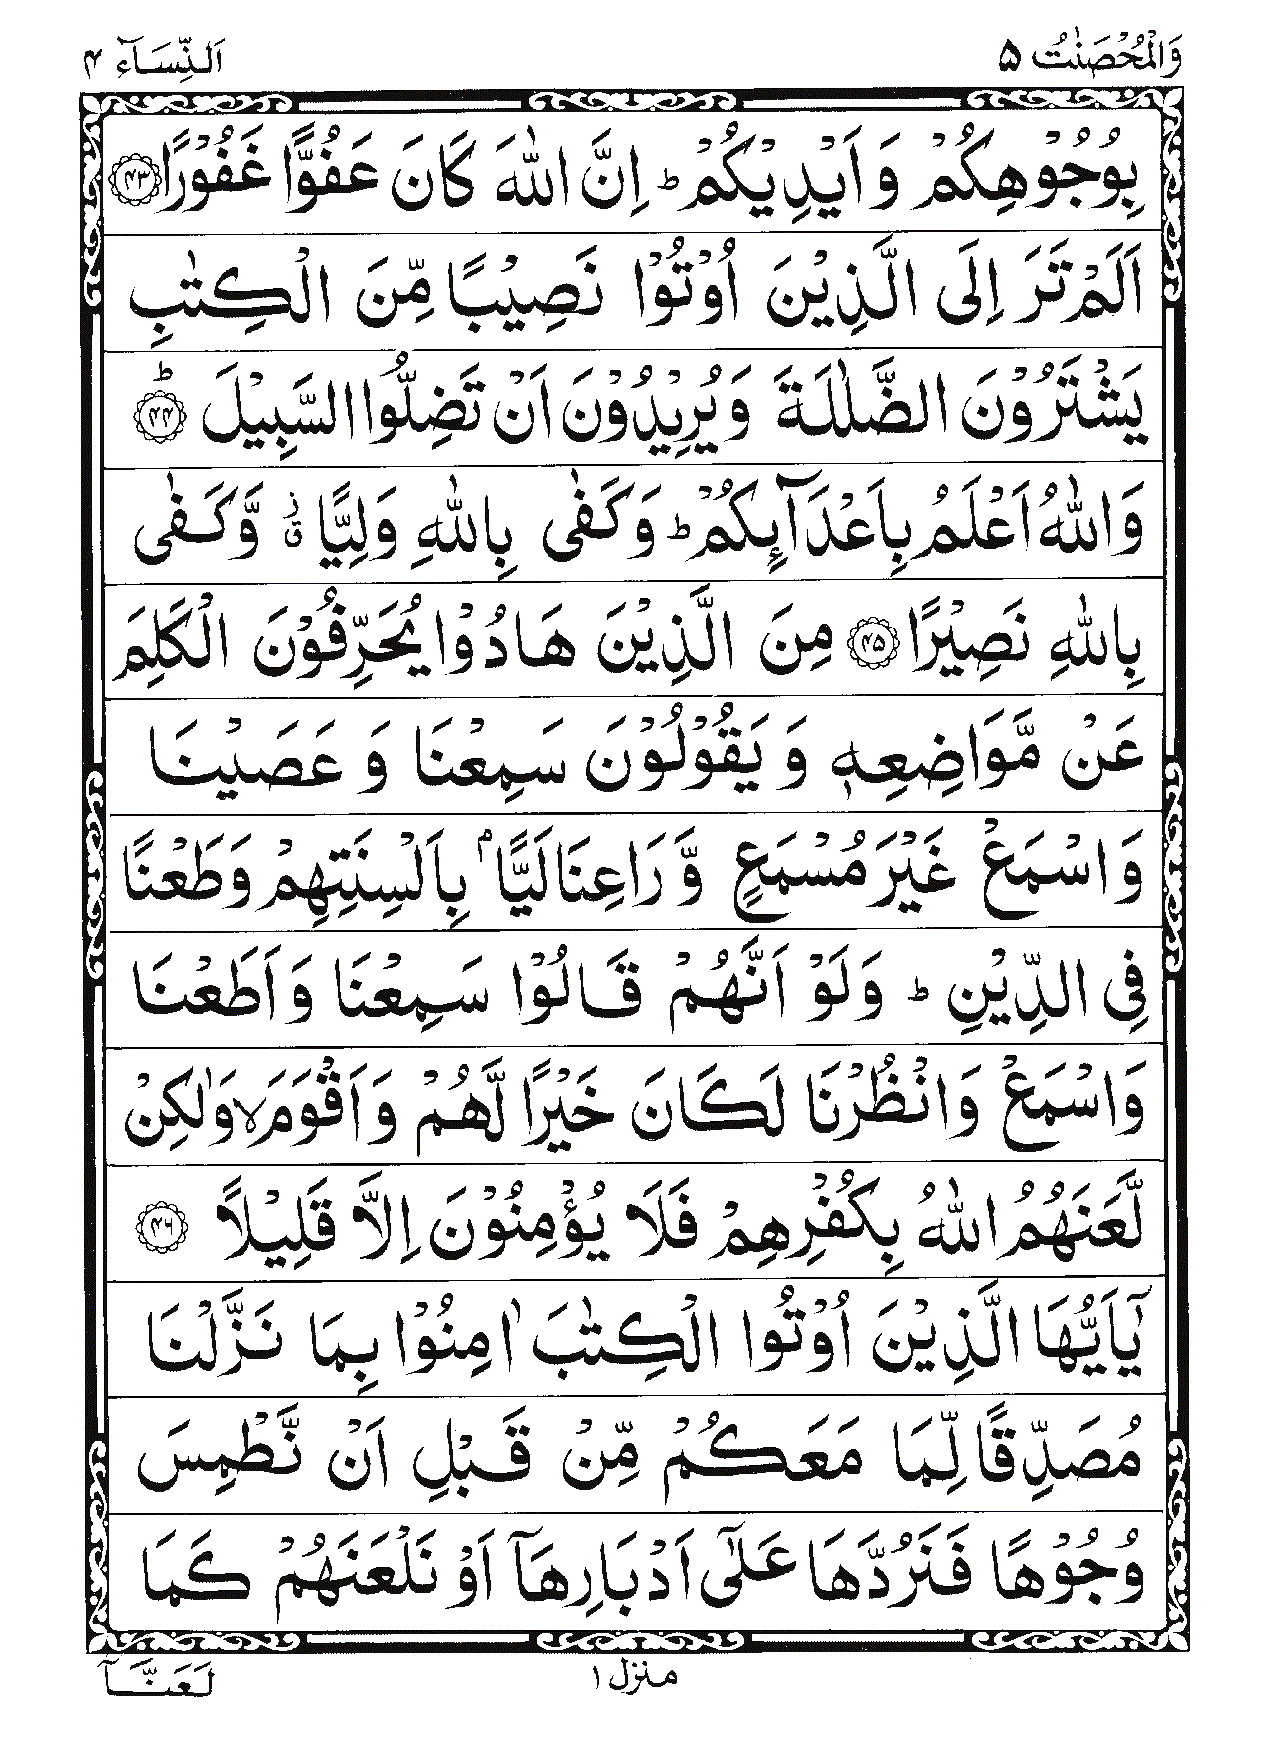 وَالْمُحْصَنٰتُ ۵ اَلنِّسَآءِ ۴
بِوُجُوْهِكُمْ وَ اَيْدِيْكُمْ ؕ اِنَّ اللّٰهَ كَانَ عَفُوًّا غَفُوْرًا ۴۳
اَلَمْ تَرَ اِلَى الَّذِيْنَ اُوْتُوْا نَصِيْبًا مِّنَ الْكِتٰبِ
يَشْتَرُوْنَ الضَّلٰلَةَ وَ يُرِيْدُوْنَ اَنْ تَضِلُّوا السَّبِيْلَ ؕ ۴۴
وَ اللّٰهُ اَعْلَمُ بِاَعْدَآىِٕكُمْ ؕ وَ كَفٰى بِاللّٰهِ وَلِيًّا ۗۙ وَّ كَفٰى
بِاللّٰهِ نَصِيْرًا ۴۵ مِنَ الَّذِيْنَ هَادُوْا يُحَرِّفُوْنَ الْكَلِمَ
عَنْ مَّوَاضِعِهٖ وَ يَقُوْلُوْنَ سَمِعْنَا وَ عَصَيْنَا
وَ اسْمَعْ غَيْرَ مُسْمَعٍ وَّ رَاعِنَا لَيًّۢا بِاَلْسِنَتِهِمْ وَ طَعْنًا
فِي الدِّيْنِ ؕ وَ لَوْ اَنَّهُمْ قَالُوْا سَمِعْنَا وَ اَطَعْنَا
وَ اسْمَعْ وَ انْظُرْنَا لَكَانَ خَيْرًا لَّهُمْ وَ اَقْوَمَ ۙ وَ لٰكِنْ
لَّعَنَهُمُ اللّٰهُ بِكُفْرِهِمْ فَلَا يُؤْمِنُوْنَ اِلَّا قَلِيْلًا ۴۶
يٰۤاَيُّهَا الَّذِيْنَ اُوْتُوا الْكِتٰبَ اٰمِنُوْا بِمَا نَزَّلْنَا
مُصَدِّقًا لِّمَا مَعَكُمْ مِّنْ قَبْلِ اَنْ نَّطْمِسَ
وُجُوْهًا فَنَرُدَّهَا عَلٰۤى اَدْبَارِهَاۤ اَوْ نَلْعَنَهُمْ كَمَا
منزل ۱ لَعَنَّاۤ